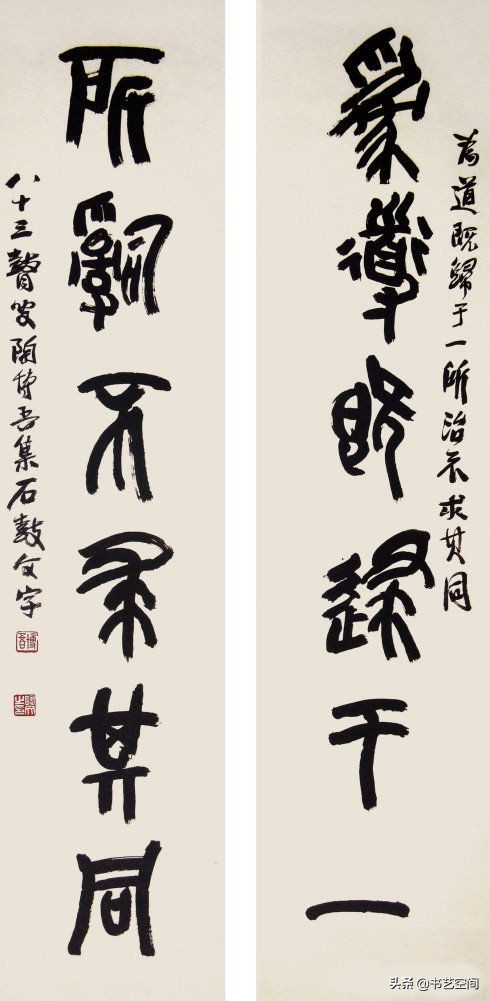 爲道既歸于一
為道既歸于一所治不求其同
所治不求其同
八十三聱叟陶博吾集石鼓文字
博吾
头条 @书艺空间